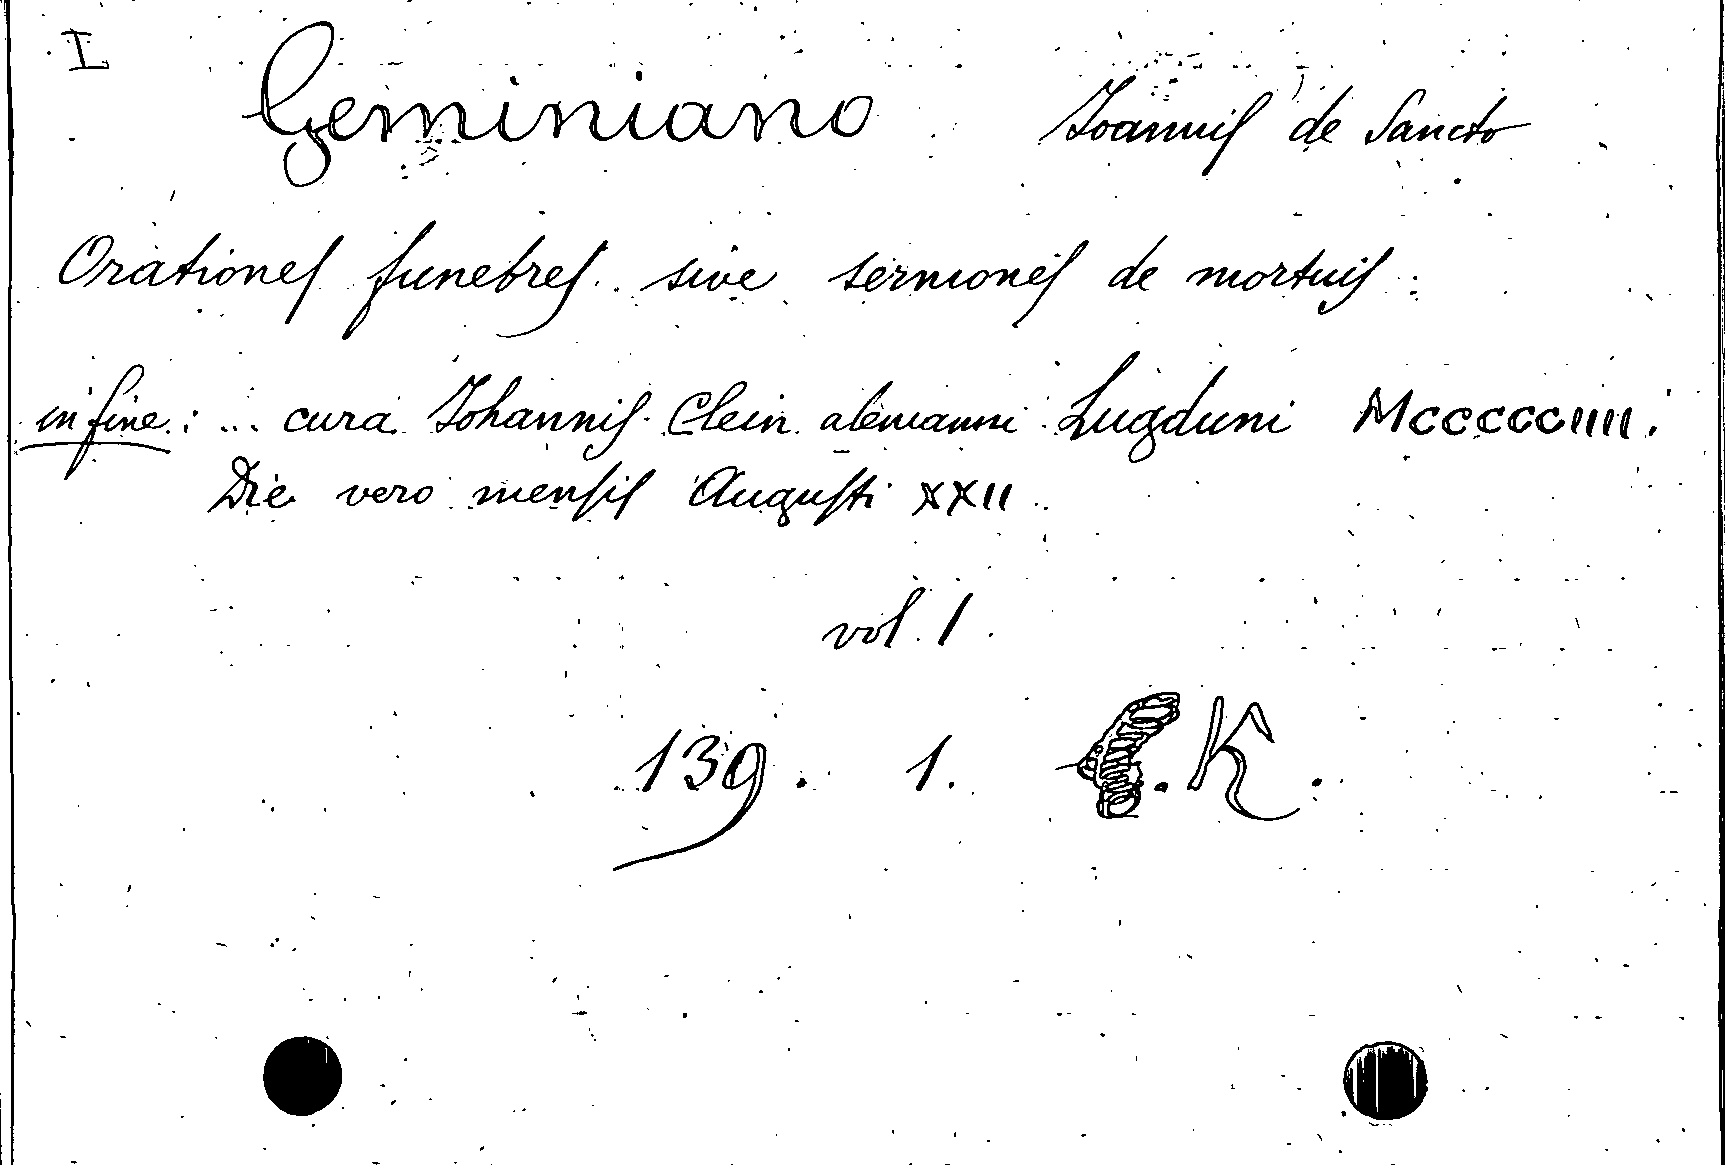 I
Geminiano Joannis de Sancto
Orationes funebres sive sermones de mortuis.
in fine: ... cura Johannis Clein alemanni Lugduni MCCCCCCIIIII.
Die vero mensis Augusti XXII
vol. 1.
139. 1. K.